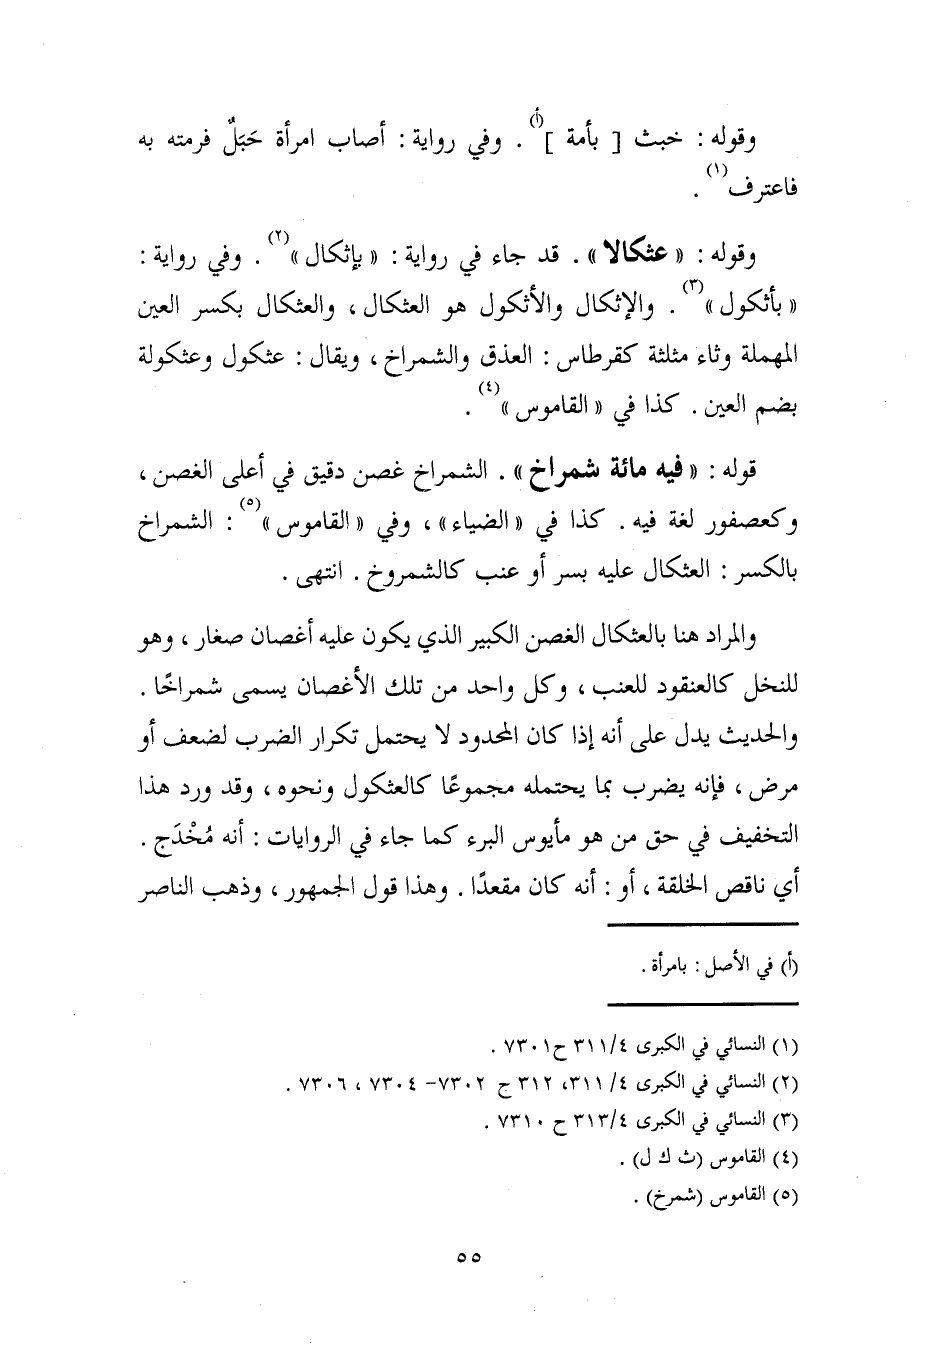 وقوله : خبث [ بأمة ](أ) . وفي رواية : أصاب امرأة حَبَلٌ فرمته به
فاعترف(١) .
وقوله : « عثكالا » . قد جاء في رواية : « بإثكال »(٢) . وفي رواية :
« بأثكول »(٣) . والإثكال والأثكول هو العثكال ، والعثكال بكسر العين
المهملة وثاء مثلثة كقرطاس : العذق والشمراخ ، ويقال : عثكول وعثكولة
بضم العين . كذا في « القاموس »(٤) .
قوله : « فيه مائة شمراخ » . الشمراخ غصن دقيق في أعلى الغصن ،
وكعصفور لغة فيه . كذا في « الضياء » ، وفي « القاموس »(٥) : الشمراخ
بالكسر : العثكال عليه بسر أو عنب كالشمروخ . انتهى .
والمراد هنا بالعثكال الغصن الكبير الذي يكون عليه أغصان صغار ، وهو
للنخل كالعنقود للعنب ، وكل واحد من تلك الأغصان يسمى شمراخًا .
والحديث يدل على أنه إذا كان المحدود لا يحتمل تكرار الضرب لضعف أو
مرض ، فإنه يضرب بما يحتمله مجموعًا كالعثكول ونحوه ، وقد ورد هذا
التخفيف في حق من هو مأيوس البرء كما جاء في الروايات : أنه مُخْدَج .
أي ناقص الخلقة ، أو : أنه كان مقعدًا . وهذا قول الجمهور ، وذهب الناصر
(أ) في الأصل : بامرأة .
(١) النسائي في الكبرى ٣١١/٤ ح٧٣٠١ .
(٢) النسائي في الكبرى ٤/ ٣١١، ٣١٢ ح ٧٣٠٢- ٧٣٠٤ ، ٧٣٠٦ .
(٣) النسائي في الكبرى ٣١٣/٤ ح ٧٣١٠ .
(٤) القاموس (ث ك ل) .
(٥) القاموس (شمرخ) .
٥٥